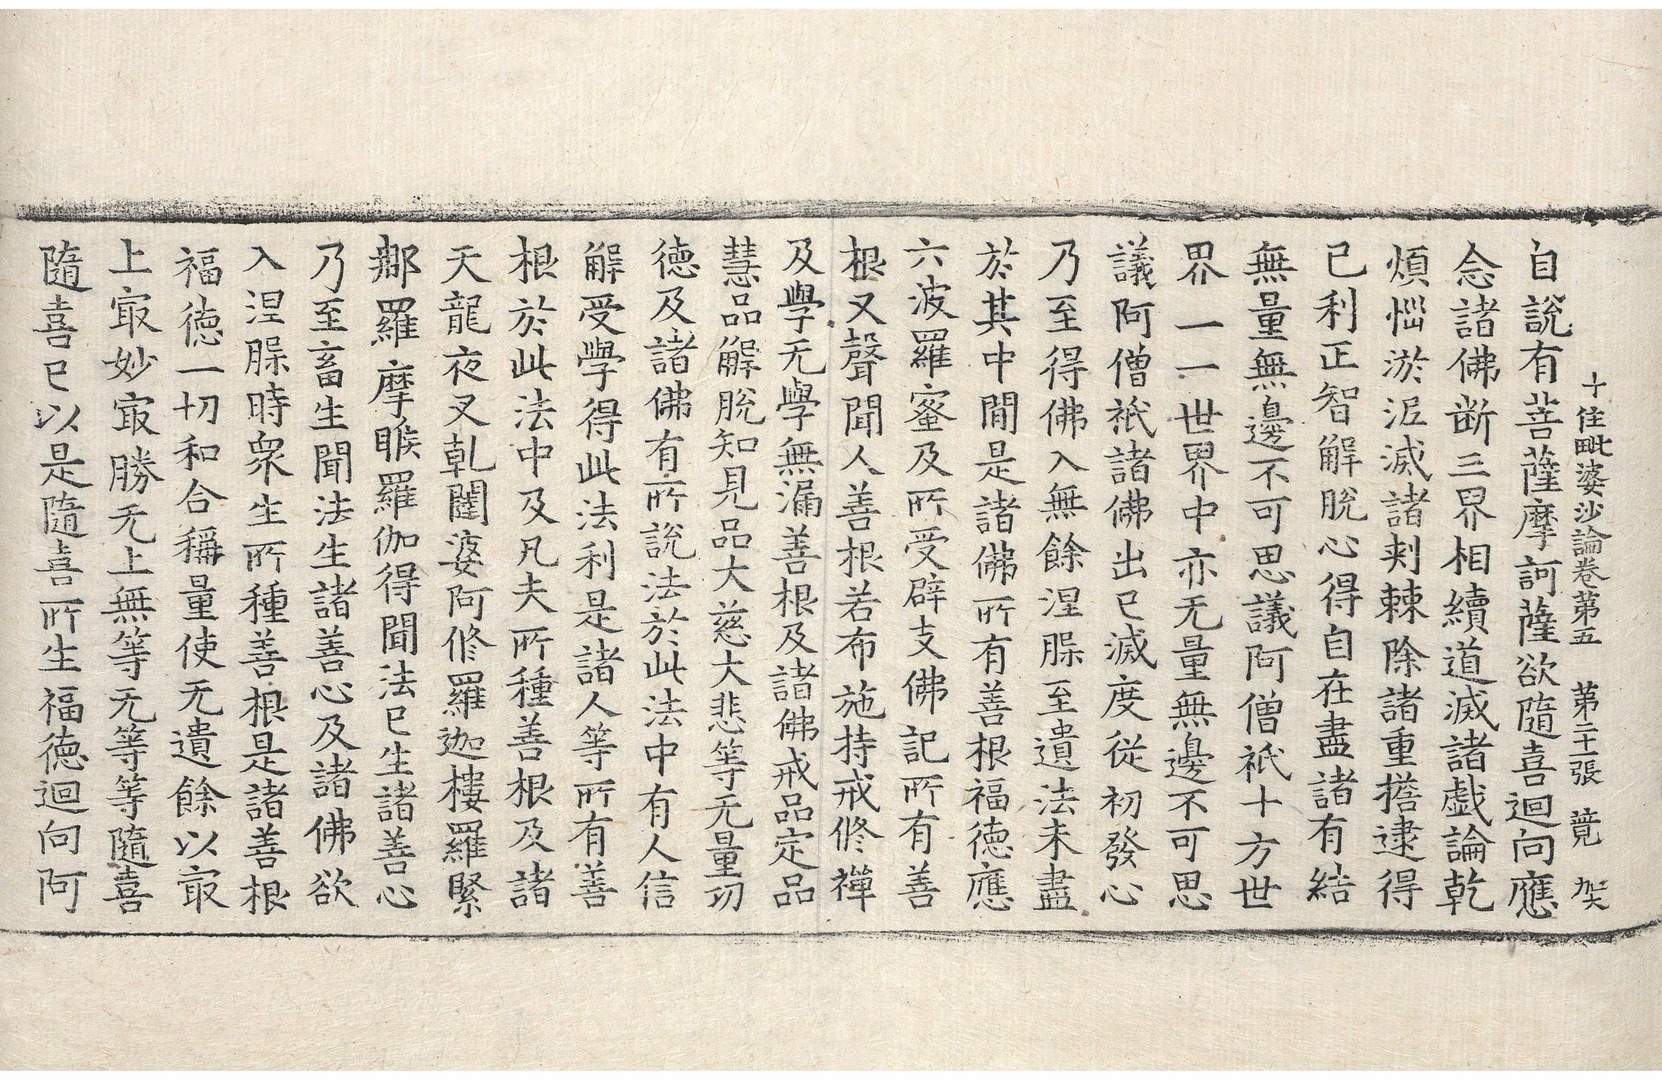 十住毗婆沙論卷第五　第二十張　竟
自說有菩薩摩訶薩欲隨喜迴向應
念諸佛断三界相續道滅諸戱論乾
煩惱淤泥滅諸刾棘除諸重擔逮得
己利正智解脫心得自在盡諸有結
無量無邊不可思議阿僧祇十方世
界一一世界中亦无量無邊不可思
議阿僧祇諸佛出已滅度從初發心
乃至得佛入無餘涅槃至遺法未盡
於其中閒是諸佛所有善根福德應
六波羅蜜及所受辟支佛記所有善
根又聲聞人善根若布施持戒修禪
及學无學無漏善根及諸佛戒品定品
慧品解脫知見品大慈大悲等无量功
德及諸佛有所說法於此法中有人信
解受學得此法利是諸人等所有善
根於此法中及凡夫所種善根及諸
天龍夜叉乹闥婆阿修羅迦樓羅緊
那羅摩睺羅伽得聞法已生諸善心
乃至畜生聞法生諸善心及諸佛欲
入涅槃時衆生所種善根是諸善根
福德一切和合稱量使无遺餘以㝡
上㝡妙㝡勝无上無等无等等隨喜
隨喜已以是隨喜所生福德迴向阿